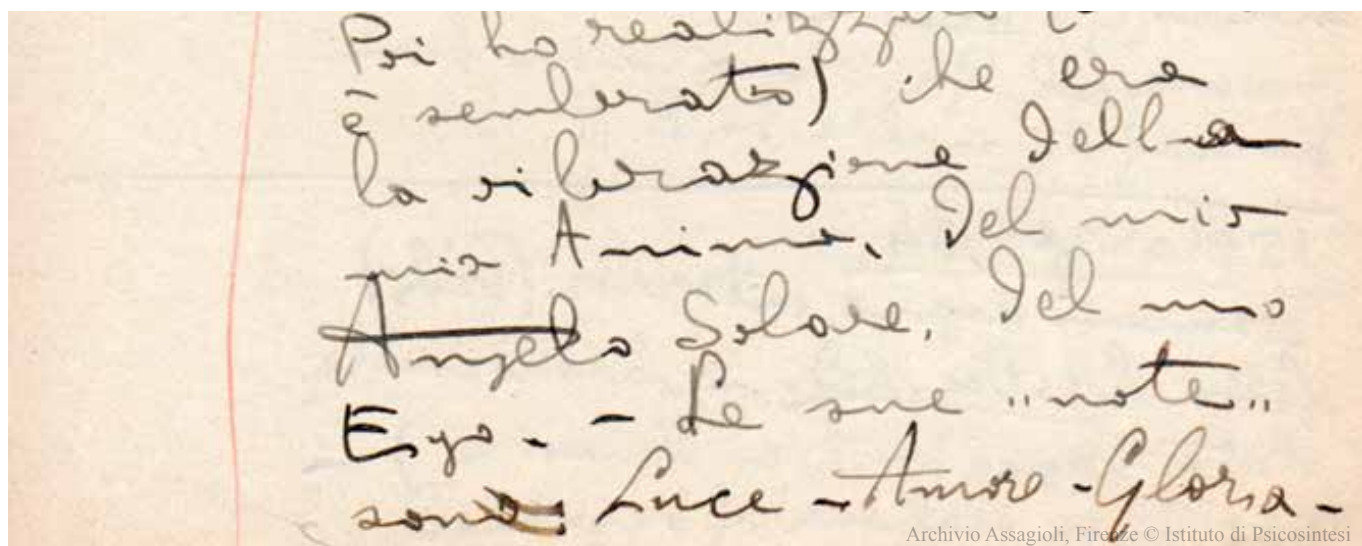 Poi ho realizzato
è sembrato) che era
la vibrazione della
mia Anima, del mio
Angelo Solare, del mio
Ego. - Le sue "note"
sono: Luce - Amore - Gloria -
Archivio Assagioli, Firenze © Istituto di Psicosintesi